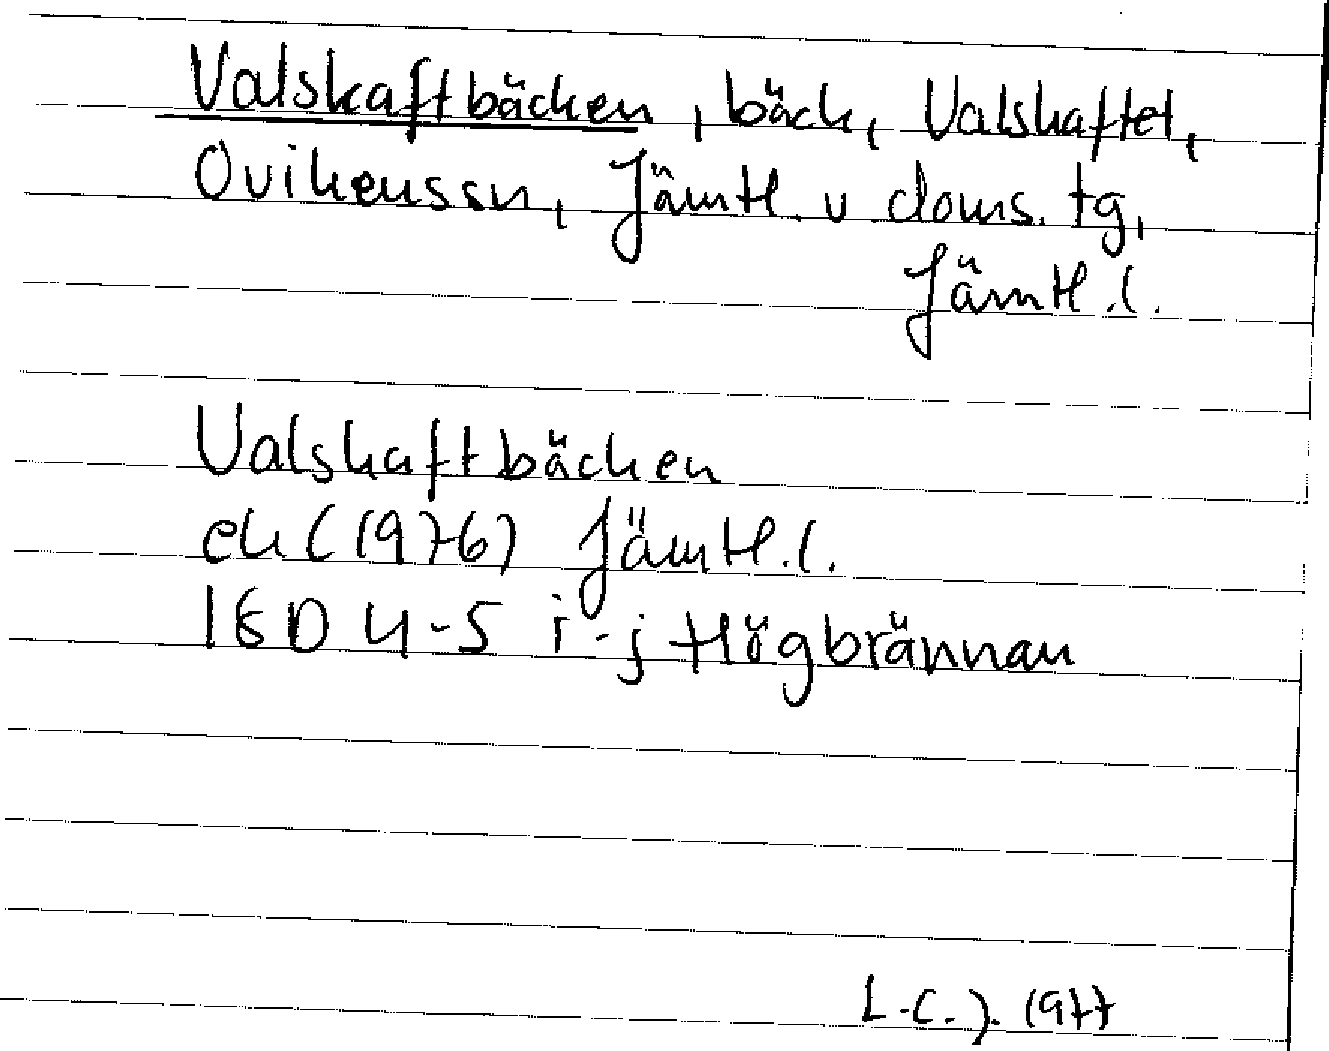 Valskaftbäcken, bäck, Valskaftet,
Ovikenssn, Jämtl. v doms. tg,
Jämtl.l.
Valskaftbäcken
ek (1976) Jämtl.l.
18D 4-5 i-j Högbrännan
L.C.J. 1977